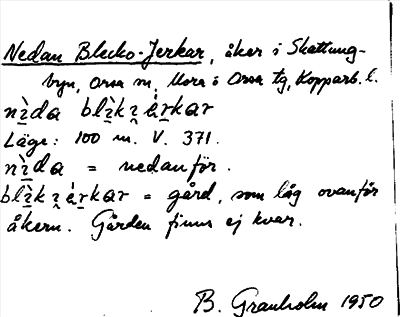 Nedan Blecko-Jerkar, åker i Skattung-
byn, Orsa sn, Mora o Orsa tg, Kopparb. l.
nìda blìkʒ ḁ̀rkar
Läge: 100 m. V. 371.
nìda = nedanför.
= gård, som låg ovanför
åkern. Gården finns ej kvar.
B. Granholm 1950